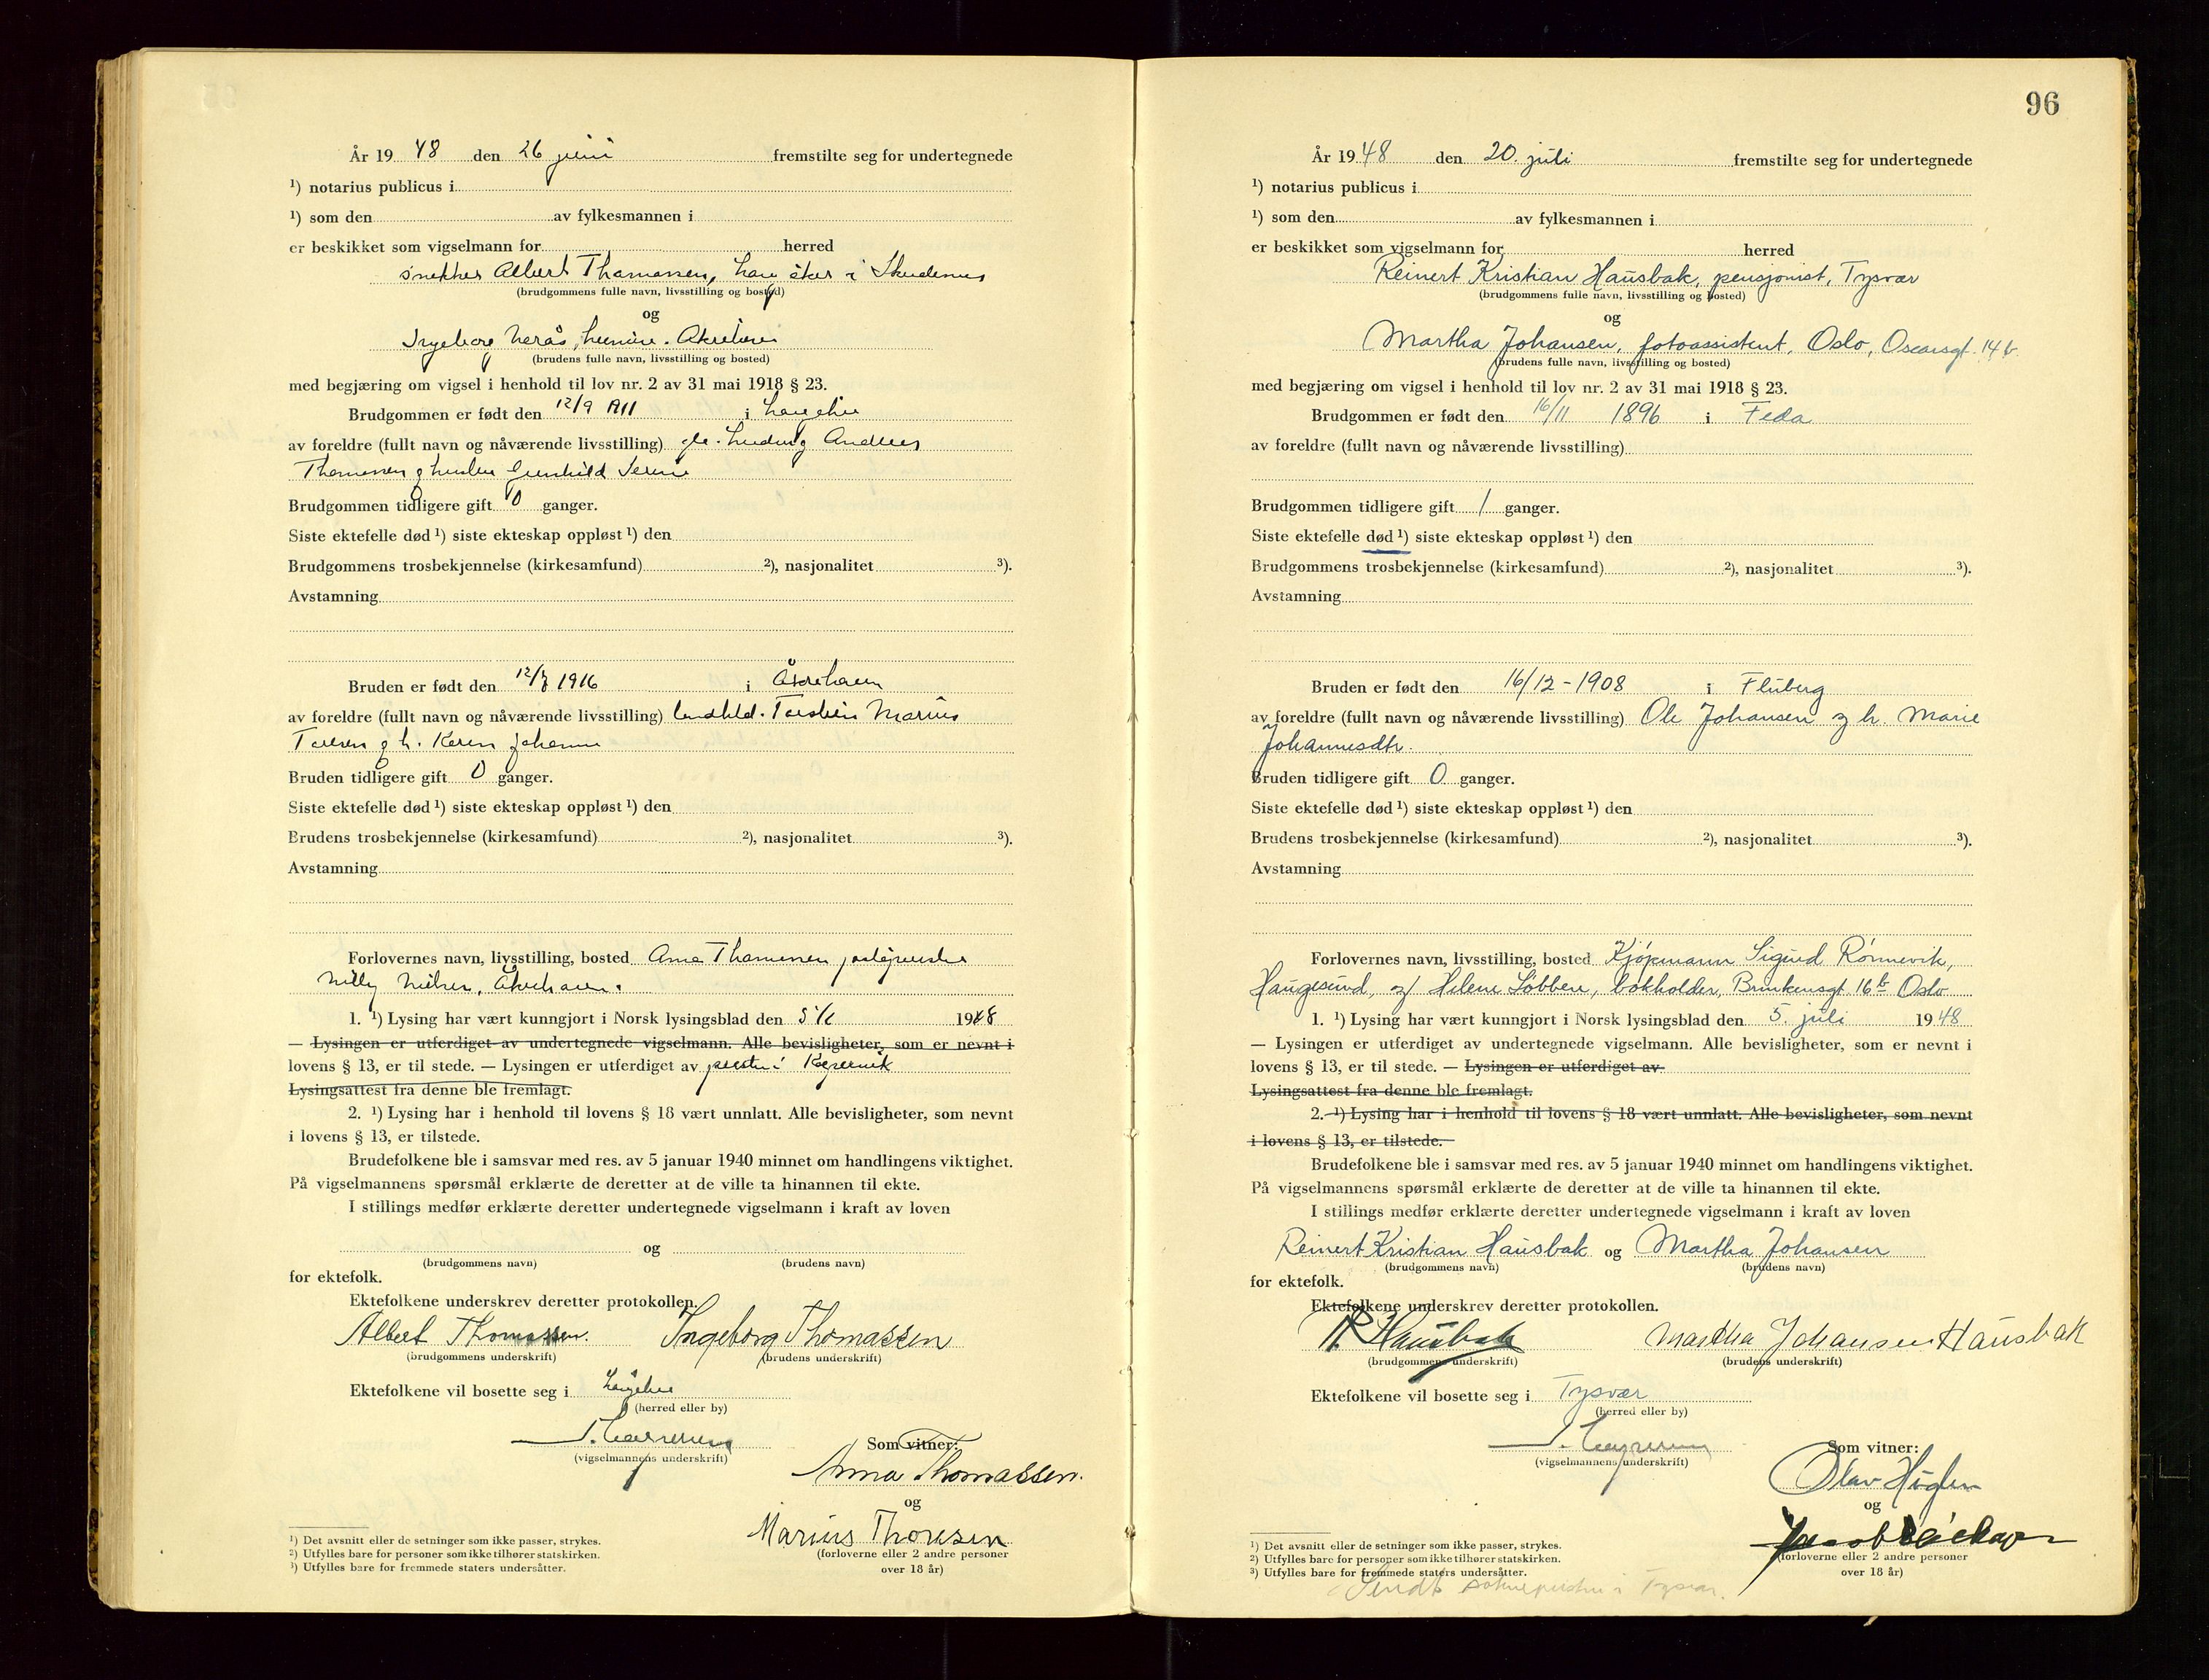 År 19 48 den 26 juni fremstilte seg for undertegnede
¹) notarius publicus i
¹) som den av fylkesmannen i
er beskikket som vigselmann for herred
snekker Albert Thomassen, i Skudenes
(brudgommens fulle navn, livsstilling og bosted)
og
Ingeborg
(brudens fulle navn, livsstilling og bosted)
med begjæring om vigsel i henhold til lov nr. 2 av 31 mai 1918 § 23.
Brudgommen er født den 12/9 1911 i
av foreldre (fullt navn og nåværende livsstilling) Ludvig Andreas
Thomassen og hustru Gunhild Serine
Brudgommen tidligere gift 0 ganger.
Siste ektefelle død ¹) siste ekteskap oppløst ¹) den
Brudgommens trosbekjennelse (kirkesamfund) ²), nasjonalitet ³).
Avstamning
Bruden er født den 1916 i Åkrehavn
av foreldre (fullt navn og nåværende livsstilling) Marius
og h. Karen
Bruden tidligere gift 0 ganger.
Siste ektefelle død ¹) siste ekteskap oppløst ¹) den
Brudens trosbekjennelse (kirkesamfund) ²), nasjonalitet ³).
Avstamning
Forlovernes navn, livsstilling, bosted Anna Thomassen
Åkrehavn.
1. ¹) Lysing har vært kunngjort i Norsk lysingsblad den 1948
— Lysingen er utferdiget av undertegnede vigselmann. Alle bevisligheter, som er nevnt i
lovens § 13, er til stede. — Lysingen er utferdiget av presten i Kopervik
Lysingsattest fra denne ble fremlagt.
2. ¹) Lysing har i henhold til lovens § 18 vært unnlatt. Alle bevisligheter, som nevnt
i lovens § 13, er tilstede.
Brudefolkene ble i samsvar med res. av 5 januar 1940 minnet om handlingens viktighet.
På vigselmannens spørsmål erklærte de deretter at de ville ta hinannen til ekte.
I stillings medfør erklærte deretter undertegnede vigselmann i kraft av loven
og
(brudgommens navn) (brudens navn)
for ektefolk.
Ektefolkene underskrev deretter protokollen.
Albert Thomassen. Ingeborg Thomassen
(brudgommens underskrift) (brudens underskrift)
Ektefolkene vil bosette seg i
(herred eller by)
Som vitner:
(vigselmannens underskrift)
Anna Thomassen.
og
Marius Thoresen
(forloverne eller 2 andre personer
over 18 år)
¹) Det avsnitt eller de setninger som ikke passer, strykes.
²) Utfylles bare for personer som ikke tilhører statskirken.
³) Utfylles bare for fremmede staters undersåtter.
96
År 19 48 den 20. juli fremstilte seg for undertegnede
¹) notarius publicus i
¹) som den av fylkesmannen i
er beskikket som vigselmann for herred
Reinert Kristian Hausbak, pensjonist, Tysvær
(brudgommens fulle navn, livsstilling og bosted)
og
Martha Johansen, fotoassistent, Oslo, Oscarsgt. 14 b.
(brudens fulle navn, livsstilling og bosted)
med begjæring om vigsel i henhold til lov nr. 2 av 31 mai 1918 § 23.
Brudgommen er født den 16/11 1896 i Feda
av foreldre (fullt navn og nåværende livsstilling)
Brudgommen tidligere gift 1 ganger.
Siste ektefelle død ¹) siste ekteskap oppløst ¹) den
Brudgommens trosbekjennelse (kirkesamfund) ²), nasjonalitet ³).
Avstamning
Bruden er født den 16/12 - 1908 i Fluberg
av foreldre (fullt navn og nåværende livsstilling) Ole Johansen og h. Marie
Johannesdtr.
Bruden tidligere gift 0 ganger.
Siste ektefelle død ¹) siste ekteskap oppløst ¹) den
Brudens trosbekjennelse (kirkesamfund) ²), nasjonalitet ³).
Avstamning
Forlovernes navn, livsstilling, bosted Kjøpmann Sigurd Rønnevik,
Haugesund, og Helene Løbben, bokholder, Brinkensgt 16 b Oslo
1. ¹) Lysing har vært kunngjort i Norsk lysingsblad den 5. juli 19 48
— Lysingen er utferdiget av undertegnede vigselmann. Alle bevisligheter, som er nevnt i
lovens § 13, er til stede. — Lysingen er utferdiget av
Lysingsattest fra denne ble fremlagt.
2. ¹) Lysing har i henhold til lovens § 18 vært unnlatt. Alle bevisligheter, som nevnt
i lovens § 13, er tilstede.
Brudefolkene ble i samsvar med res. av 5 januar 1940 minnet om handlingens viktighet.
På vigselmannens spørsmål erklærte de deretter at de ville ta hinannen til ekte.
I stillings medfør erklærte deretter undertegnede vigselmann i kraft av loven
Reinert Kristian Hausbak og Martha Johansen
(brudgommens navn) (brudens navn)
for ektefolk.
Ektefolkene underskrev deretter protokollen.
R Hausbak Martha Johansen Hausbak
(brudgommens underskrift) (brudens underskrift)
Ektefolkene vil bosette seg i Tysvær
(herred eller by)
Som vitner:
(vigselmannens underskrift)
Olav
og
Jacob
(forloverne eller 2 andre personer
over 18 år)
¹) Det avsnitt eller de setninger som ikke passer, strykes.
²) Utfylles bare for personer som ikke tilhører statskirken.
³) Utfylles bare for fremmede staters undersåtter.
Sendt soknepresten i Tysvær.